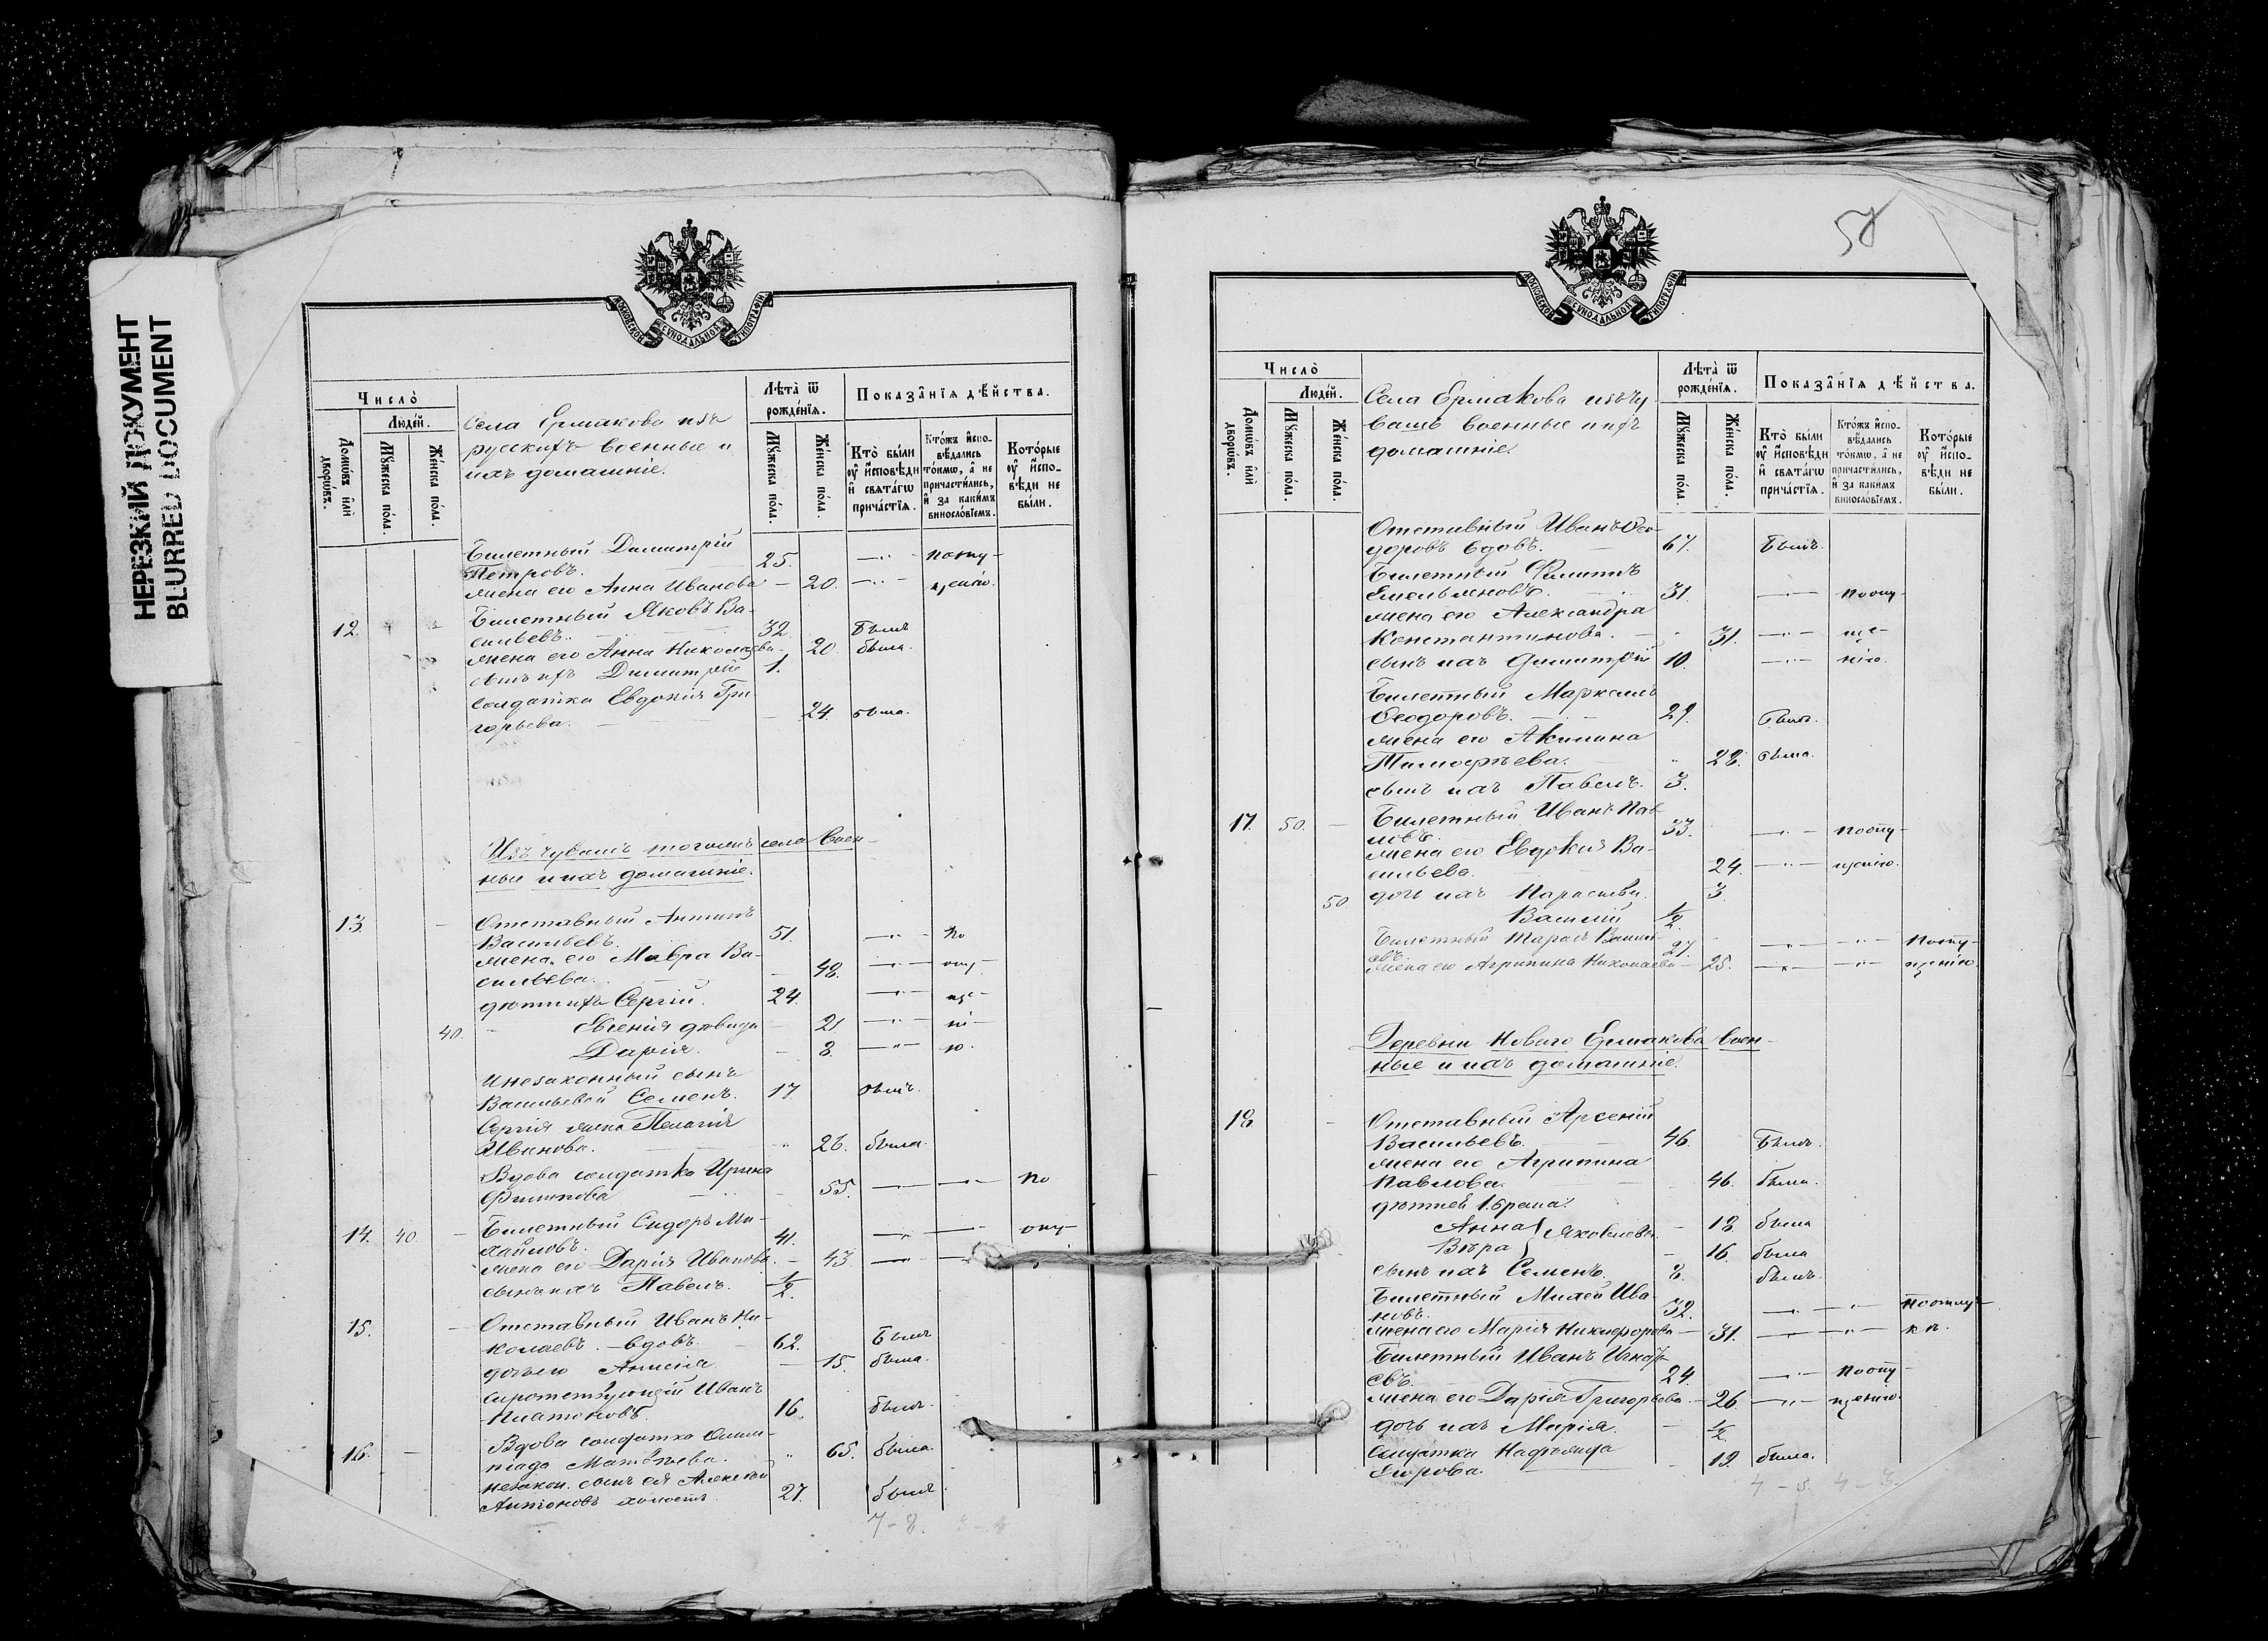 НЕРЕЗКИЙ ДОКУМЕНТ
BLURRED DOCUMENT
МОСКОВСКОЙ СѴНОДАЛЬНОЙ ТИПОГРАФІИ
Число̀
Люде́й.
Домѡ́въ и҆лѝ дворѡ́въ.
Мꙋ́жеска по́ла.
Же́нска по́ла.
Села Ермакова изъ
русскихъ военные и
ихъ домашніе.
Лѣта̀ ѿ рожде́нїѧ.
Мꙋ́жеска по́ла.
Же́нска по́ла.
Показа̑нїѧ дѣ́йства.
Кто̀ бы́ли оу҆ и҆́сповѣди и҆ свѧта́гѡ прича́стїѧ.
Кто́жъ и҆спо-вѣ́дались то́кмѡ, а҆ не причасти́лись, и҆ за каки́мъ виносло́вїемъ.
Кото́рые оу҆ и҆́спо-вѣди не бы́ли.
Билетный Димитрій
Петровъ. 25. —"— по опу-
жена его Анна Иванова — 20. —"— щенію.
12. Билетный Яковъ Ва-
сильевъ. 32. Былъ
жена его Анна Николаева — 20. была.
сынъ ихъ Димитрій 1.
Солдатка Евдокія Гри-
горьева. — 24. была.
Изъ чувашъ тогожъ села Воен-
ные и ихъ домашніе.
13. — Отставный Антипъ
Васильевъ. 51. —"— По
жена его Мавра Ва-
сильева. — 48. —"— опу-
дѣти ихъ Сергій. 24. —"— ще-
40. Евгенія дѣвица — 21. —"— ні-
Дарія. — 8. —"— ю.
Незаконный сынъ
Васильевой Семенъ. 17. былъ.
Сергія жена Пелагія
Иванова. " 26. была.
Вдова солдатка Ирина
Филипова — 55. —"— —"— По
14. 40. — Билетный Сидоръ Ми-
хайловъ. 41. —"— —"— опу-
жена его Дарія Иванова. — 43. —"—
сынъ ихъ Павелъ. ½.
15. — Отставный Иванъ Ни-
колаевъ. — вдовъ. 62. Былъ
дочь его Анисія. — 15. была.
Сиротствующій Иванъ
Платоновъ. 16. былъ.
16. — Вдова солдатка Олим-
піада Матвѣева. " 65. была.
незакон. сынъ ея Алексѣй
Антоновъ холостъ. 27. былъ.
7 - 8. 3 - 4
Число̀
Люде́й.
Домѡ́въ и҆лѝ дворѡ́въ.
Мꙋ́жеска по́ла.
Же́нска по́ла.
Села Ермакова изъ чу-
вашъ военные и ихъ
домашніе.
Лѣта̀ ѿ рожде́нїѧ.
Мꙋ́жеска по́ла.
Же́нска по́ла.
Показа̑нїѧ дѣ́йства.
Кто̀ бы́ли оу҆ и҆́сповѣди и҆ свѧта́гѡ прича́стїѧ.
Кто́жъ и҆спо-вѣ́дались то́кмѡ, а҆ не причасти́лись, и҆ за каки́мъ виносло́вїемъ.
Кото́рые оу҆ и҆́спо-вѣди не бы́ли.
Отставный Иванъ Ѳео-
доровъ вдовъ. — 67. Былъ.
Билетный Филиппъ
Емельяновъ. 31. —"— По опу-
жена его Александра
Константинова. — " 31. —"— ще-
сынъ ихъ Димитрій 10. —"— нію.
Билетный Маркелъ
Ѳеодоровъ. 29. Былъ.
жена его Акилина
Тимофѣева. " 28. была.
сынъ ихъ Павелъ. 3.
17. 50. — Билетный Иванъ Пав-
ловъ. 33. —"— По опу-
жена его Евдокія Ва-
сильева. 24. —"— щенію.
50. дочь ихъ Параскева. 3.
Василій ½.
Билетный Тарасъ Василь-
евъ. 27. —"— —"— По опу-
жена его Агрипина Николаева — 25. —"— —"— щенію.
Деревни Новаго Ермакова Воен-
ные и ихъ домашніе.
18. — Отставный Арсеній
Васильевъ. 46. Былъ.
жена его Агрипина
Павлова. 46. была.
дѣтей 1. брака:
Анна } Яковлевы. — 18. была
Вѣра } — 16. была
сынъ ихъ Семенъ. 8. былъ.
Билетный Михей Ива-
новъ. 32. —"— —"— По отлу-
жена его Марія Никифорова — 31. —"— —"—
Билетный Иванъ
евъ. 24. —"— По опу-
жена его Дарія Григорьева. — 26 —"— щенію.
дочь ихъ Марія. — ½.
Солдатка Надежда
Егорова. — 19. была.
7 - 5. 4 - 3.